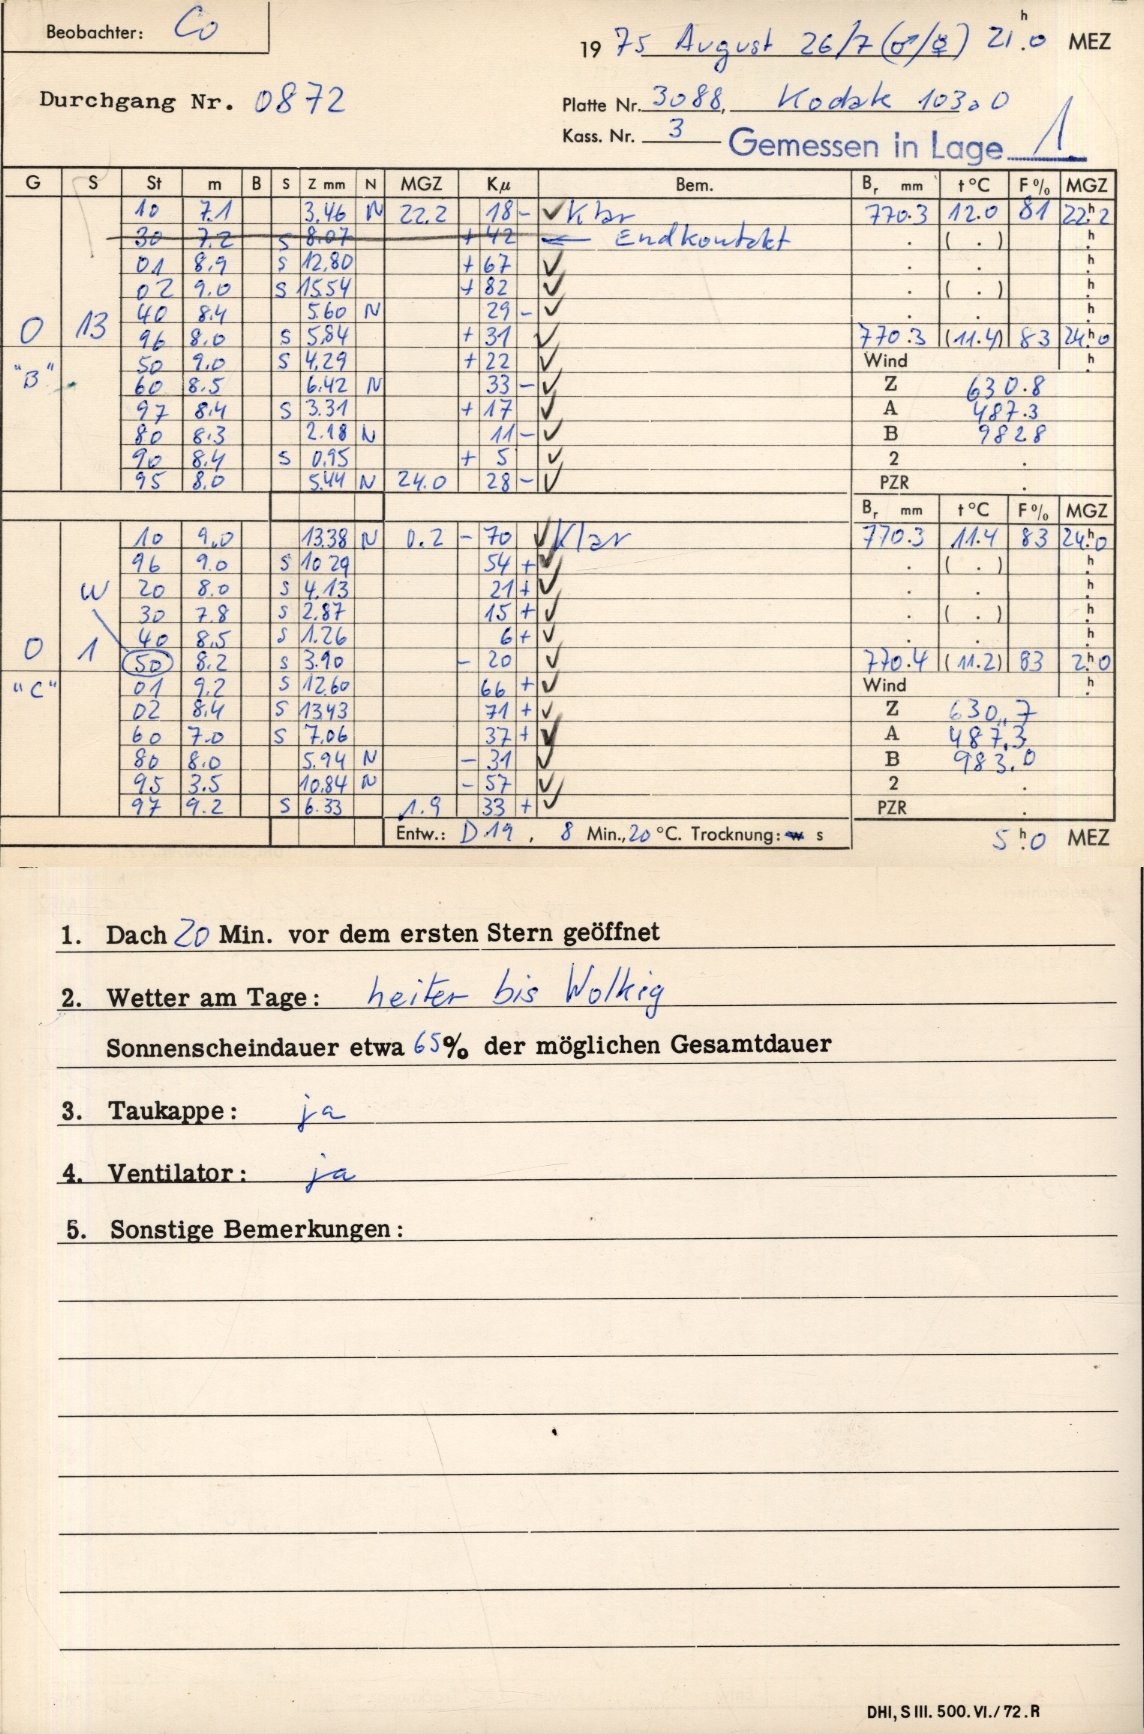 Beobachter: Co
1975 August 26/7 (♂/☿) 21.ʰ0 MEZ
Durchgang Nr. 0872
Platte Nr. 3088, Kodak 103a0
Kass. Nr. 3 Gemessen in Lage 1
G S St m B S Z mm N MGZ Kμ Bem. Bᵣ mm t°C F% MGZ
10 7.1 3.46 N 22.2 18- ✓ Klar 770.3 12.0 81 22.ʰ2
30 7.2 S 8.07 +42 ← Endkontakt . ( . ) ʰ
01 8.9 S 12.80 +67 ✓ . ʰ
02 9.0 S 15.54 +82 ✓ . ( . ) ʰ
40 8.4 5.60 N 29- ✓ . . ʰ
0 13 96 8.0 S 5.84 +31 ✓ 770.3 (11.4) 83 24.ʰ0
50 9.0 S 4.29 +22 ✓ Wind ʰ
"B" 60 8.5 6.42 N 33- ✓ Z 630.8
97 8.4 S 3.31 +17 ✓ A 487.3
80 8.3 2.18 N 11- ✓ B 982 8
90 8.4 S 0.95 +5 ✓ 2 .
95 8.0 5.44 N 24.0 28- ✓ PZR .
Bᵣ mm t°C F% MGZ
10 9.0 13.38 N 0.2 -70 ✓ Klar 770.3 11.4 83 24.ʰ0
96 9.0 S 10 29 54+ ✓ . ( . ) ʰ
W 20 8.0 S 4.13 21+ ✓ . ʰ
30 7.8 S 2.87 15+ ✓ . ( . ) ʰ
40 8.5 S 1.26 6+ ✓ . . ʰ
0 1 50 8.2 S 3.90 -20 ✓ 770.4 (11.2) 83 2.ʰ0
"C" 01 9.2 S 12.60 66+ ✓ Wind ʰ
02 8.4 S 13.43 71+ ✓ Z 630.7
60 7.0 S 7.06 37+ ✓ A 487.3
80 8.0 5.94 N -31 ✓ B 983.0
95 3.5 10.84 N -57 ✓ 2 .
97 9.2 S 6.33 1.9 33+ ✓ PZR .
Entw.: D19, 8 Min., 20°C. Trocknung: w s 5.ʰ0 MEZ
1. Dach 20 Min. vor dem ersten Stern geöffnet
2. Wetter am Tage: heiter bis Wolkig
Sonnenscheindauer etwa 65% der möglichen Gesamtdauer
3. Taukappe: ja
4. Ventilator: ja
5. Sonstige Bemerkungen:
DHI, S III. 500. VI./72. R